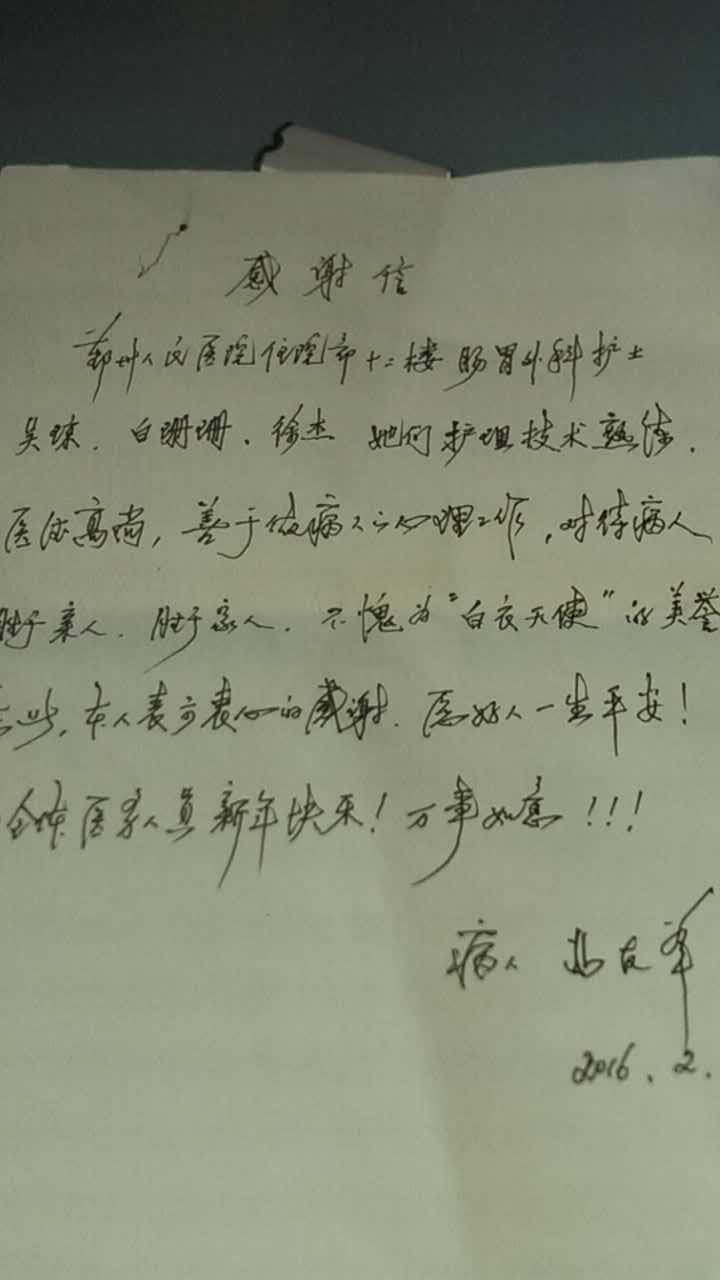 感谢信
郑州人民医院住院部十二楼肠胃外科护士
吴琼、白珊珊、徐杰 她们护理技术熟练、
医德高尚,善于做病人的心理工作,对待病人
胜于亲人、胜于家人、不愧为"白衣天使"的美誉
在此,本人表示衷心的感谢、愿好人一生平安!
全体医务人员新年快乐!万事如意!!!
病人 友
2016.2.